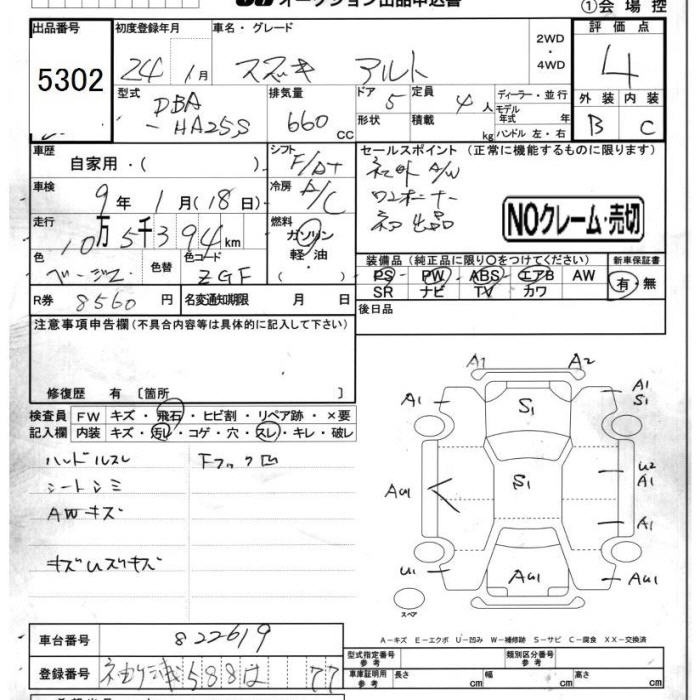 オークション出品申込書
①会場控
出品番号 初度登録年月 車名・グレード 2WD・4WD 評価点
5302 24年1月 スズキ アルト 4
型式 排気量 ドア 定員 ディーラー・並行
DBA-HA25S 660cc 5 4人 モデル年式 年
形状 積載 kg ハンドル 左・右
外装 内装
B C
車歴 自家用・( ) シフト F/AT
セールスポイント (正常に機能するものに限ります)
車検 9年1月(18日) 冷房 A/C
ワンオーナー
NOクレーム・売切
走行 10万5千394km 燃料 ガソリン・軽油・( )
色 ベージュ 色替 色コード ZGF
装備品 (純正品に限り○をつけてください) 新車保証書
PS PW ABS エアB AW 有・無
SR ナビ TV カワ
R券 8560円 名変通知期限 月 日
後日品
注意事項申告欄(不具合内容等は具体的に記入して下さい)
修復歴 有 [箇所 ]
検査員記入欄 FW キズ・飛石・ヒビ割・リペア跡・×要
内装 キズ・汚レ・コゲ・穴・スレ・キレ・破レ
ハンドルスレ Fフック凹
シートシミ
AWキズ
キズUスリキズ
A1 A2
A1 S1 A1 S1
S1 U2 A1
AU1 A1
U1 AU1 AU1
スペア
A-キズ E-エクボ U-凹み W-補修跡 S-サビ C-腐食 XX-交換済
車台番号 822619
型式指定番号 参考 類別区分番号 参考
登録番号 袖ヶ浦588は 77
車庫証明用 参考 長さ cm 幅 cm 高さ cm